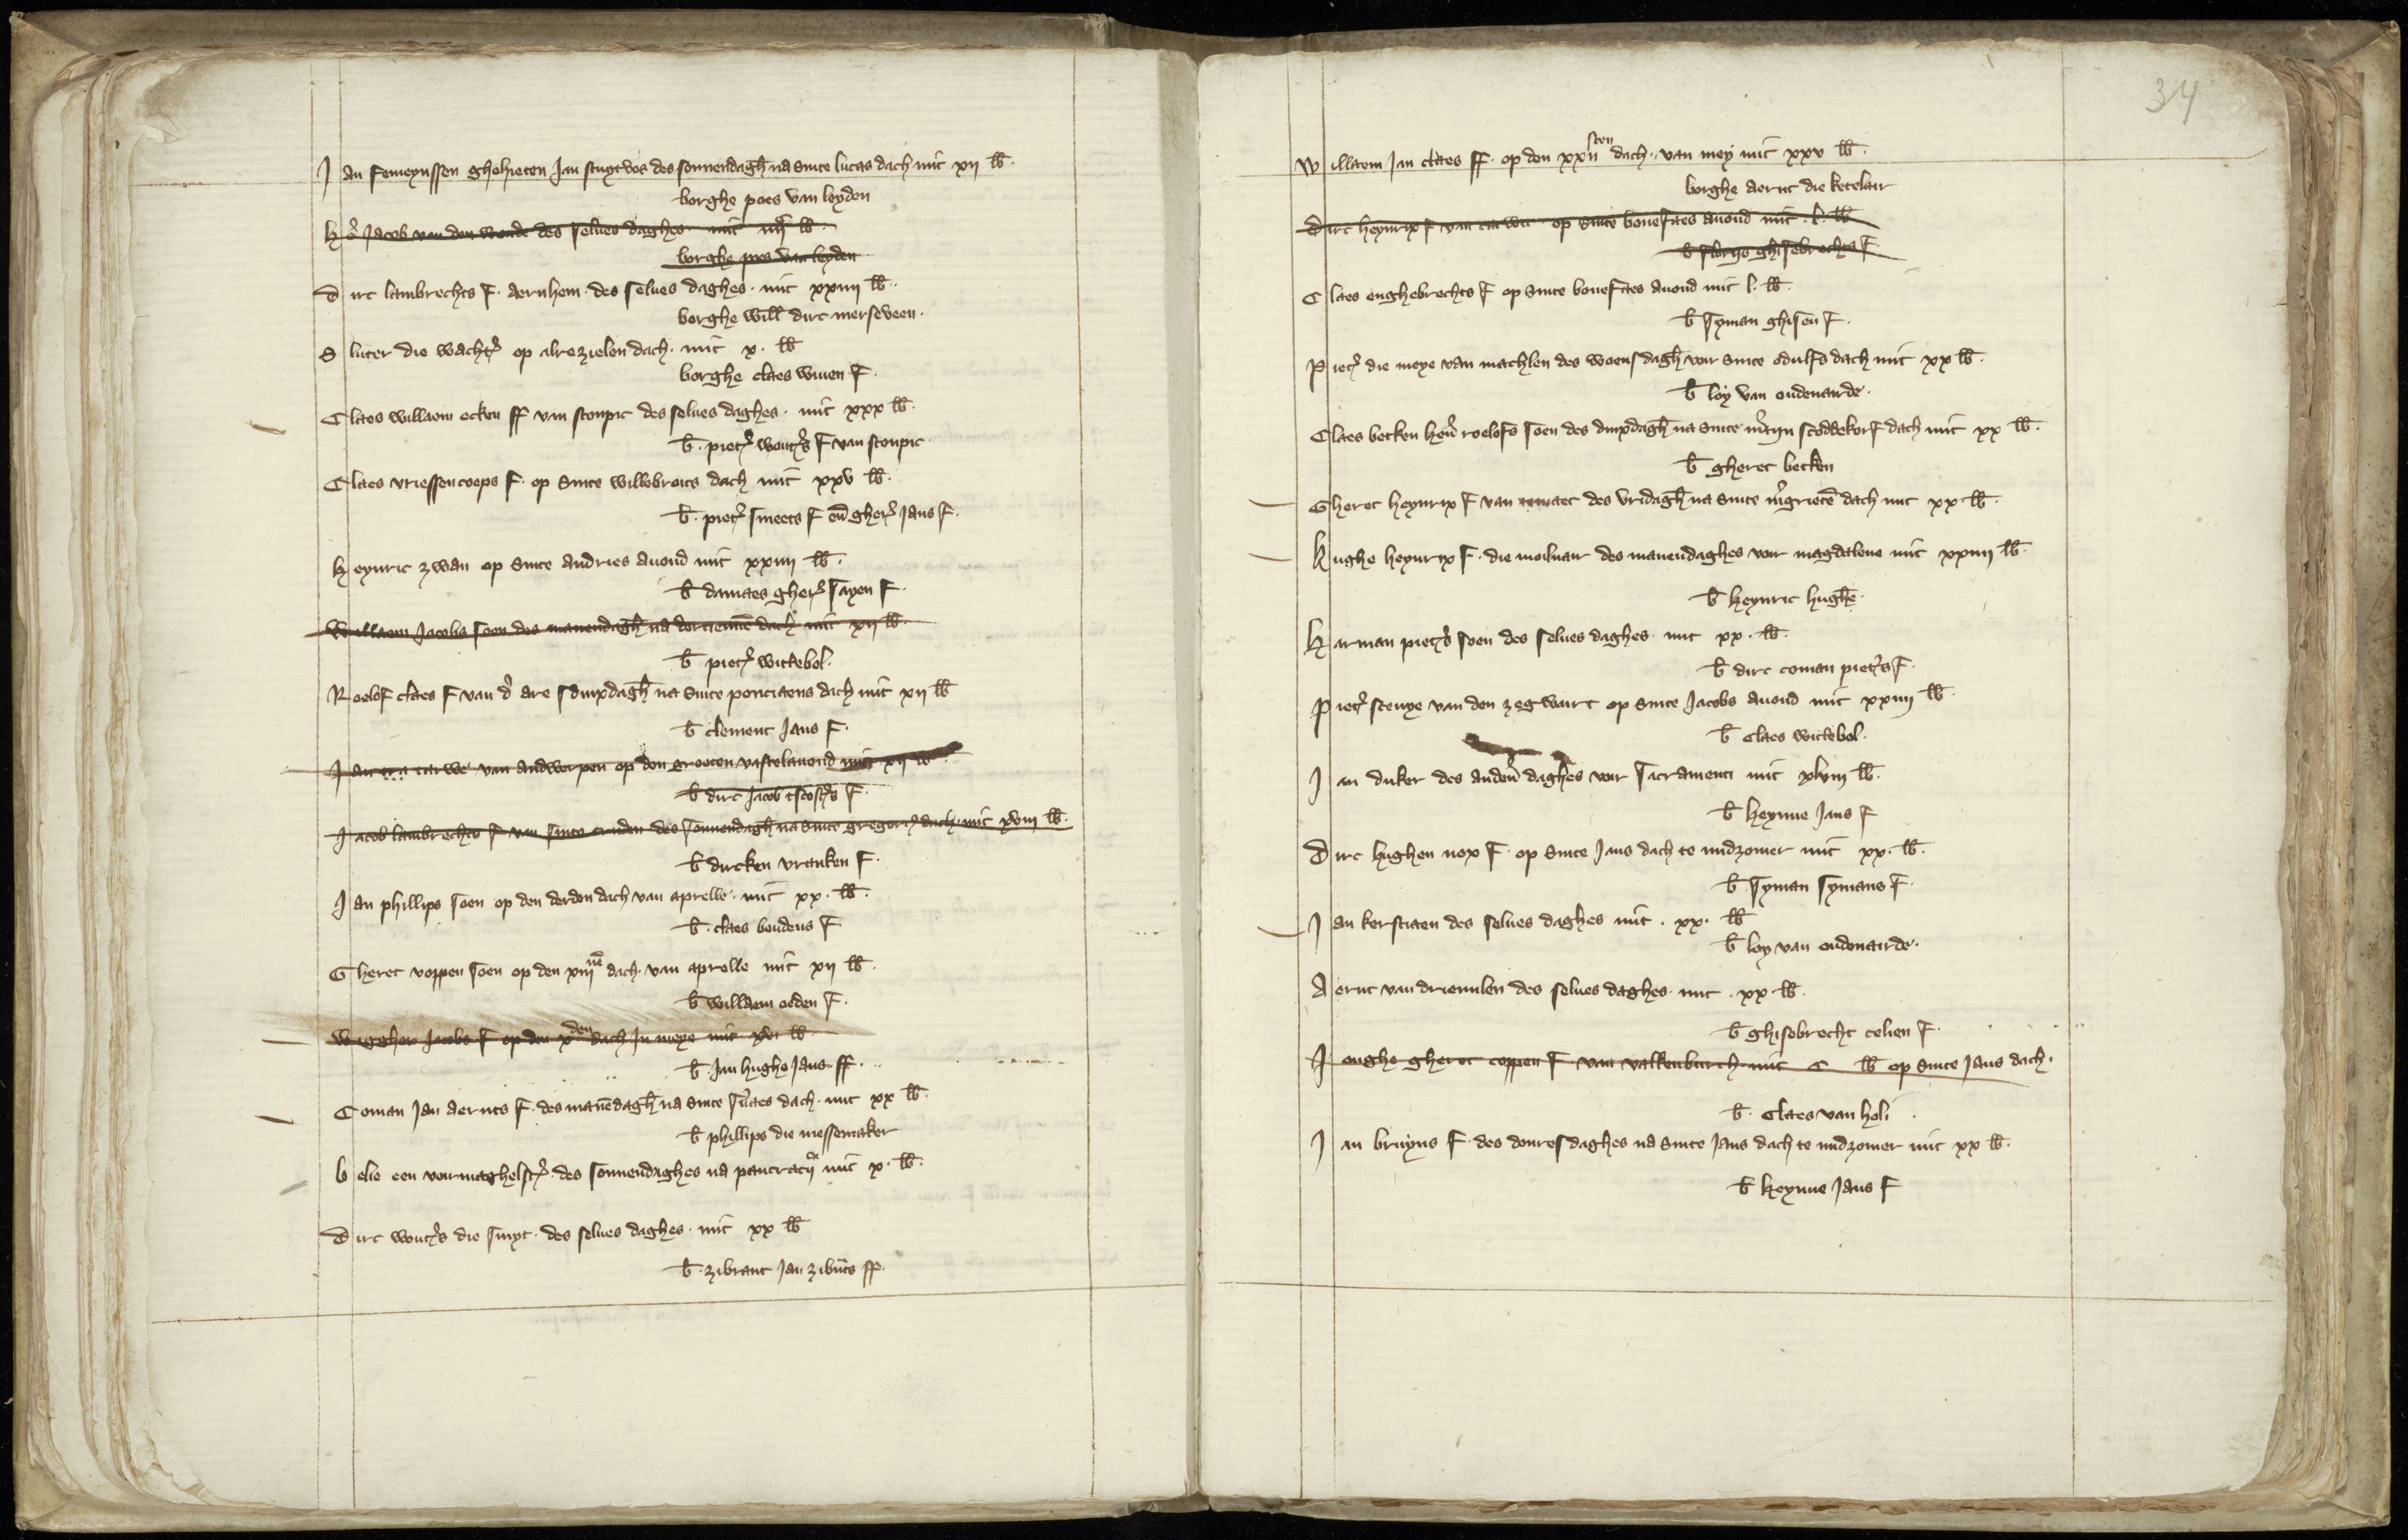 Jan femeynssen ghehieten Jan stuytvos des sonnendagh na sinte lucas dach mit xij lb.
borghe poes van leyden
Her Jacob van den woude des selues daghes mit lb.
borghe poes van leyden
Dirc lambrechts f. aernhem des selues daghes. mit xxiiij lb.
borghe will dirc merseveen.
Sluter die wachter op alrezielen dach. mit x. lb
borghe claes wiuen f.
Claes willaem ecken ff van stompic des selues daghes. mit xxx lb.
b. pieter wouters f van stompic.
Claes vriessencoeps f. op sinte willebroits dach mit xxv lb.
b. pieter smeets f en gher Jans f.
Heynric zwan op sinte andries auond mit xxiiij lb.
b damaes gher sayen f.
Willaem Jacobs soen des manendagh na dertienne dach mit xij lb.
b pieter wittebol.
Roelof claes f van d are sdinxdagh na sinte ponciaens dach mit xij lb
b clement Jans f.
Jan tarwe van andwerpen op den grooten vastelauond mit xij lb.
b dirc Jacob f.
Jacob lambrechts f van sinte des sonnendagh na sinte gregori dach. mit xviij lb.
b dircken vranken f.
Jan phillips soen op den derden dach van aprelle. mit xx. lb.
b. claes boudens f
Gheret voppen soen op den xiij ne dach. van aprelle mit xij lb.
b willaem oeden f.
Wiggher Jacobs f op den x den dach in meye mit lb.
b. Jan hughe Jans ff.
Coman Jan aernts f. des manedagh na sinte s'uaes dach. mit xx lb.
b phillips die messemaker
belie een voirmaghelster des sonnendaghes na pancracij mit x. lb.
Dirc wouters die smyt. des selues daghes. mit xx lb
b. zibrant Jan zibrants ff.
34
Willaem Jan claes ff. op den xxij sten dach. van mey mit xxv lb.
borghe aernt die ketelair
Dirc heynrix f van catwic op sinte bonefaes auond mit. l. lb
b florijs ghisebrechts f
Claes enghebrechts f op sinte bonefaes auond mit l. lb.
b syman ghisen f.
Pieter die meye van machlen des woensdagh voir sinte odulfs dach mit xx lb.
b loy van oudenairde.
Claes betken roelofs soen des dinxdagh na sinte m'tijn scoddekorf dach mit xx lb.
b gheret betken
Gheret heynrix f van des vridagh na sinte m'grieten dach mit xx lb.
Hughe heynrix f. die moilnair des manendaghes voir magdalene mit xxiiij lb.
b heynric hughe.
Harman pieters soen des selues daghes. mit xx. lb.
b dirc coman pieters f.
Pieter steuye van den zegwairt op sinte Jacobs auond mit xxiiij lb
b claes wittebol.
Jan duker des anderen daghes voir sacramenti mit xlviij lb.
b heynne Jans f
Dirc hughen nox f. op sinte Jans dach te midzomer mit xx. lb.
b syman symans f.
Jan kerstiaen des selues daghes mit. xx. lb
b loy van oudenairde.
Aernt van driemilen des selues daghes. mit. xx lb.
b ghisebrecht celien f.
Jonghe gheret coppen f van valkenburch mit c lb op sinte Jans dach.
b. claes van holi.
Jan bruyns f. des donresdaghes na sinte Jans dach te midzomer mit xx lb.
b heynne Jans f